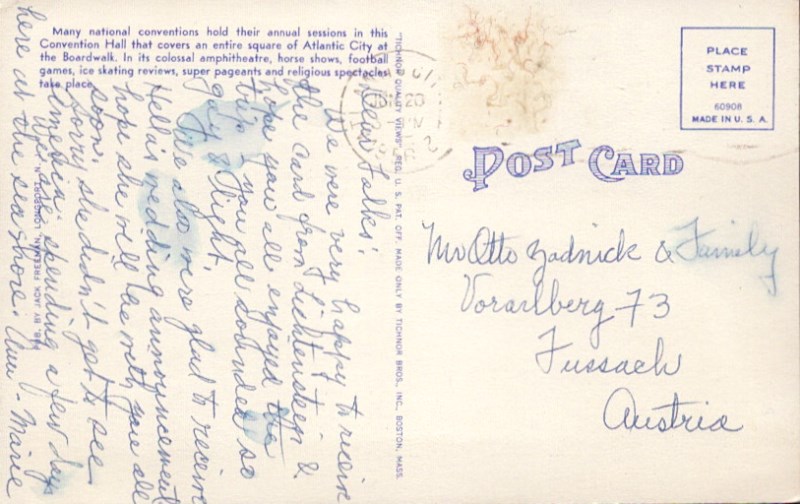 Many national conventions hold their annual sessions in this
Convention Hall that covers an entire square of Atlantic City at
the Boardwalk. In its colossal amphitheatre, horse shows, football
games, ice skating reviews, super pageants and religious spectacles
take place.
Dear Folks!
We were very happy to receive
the card from Lichtenstein &
hope you all enjoyed the
trip - you all sounded so
gay & light.
We also were glad to receive
Hella's wedding announcement
hope she will be with you all
soon.
Sorry she didn't get to see
America.
We are spending a few days
here at the sea-shore. Ann-Marie
PUB. BY JACK FREEMAN, LONGPORT, N. J.
"TICHNOR QUALITY VIEWS" REG. U. S. PAT. OFF. MADE ONLY BY TICHNOR BROS., INC., BOSTON, MASS.
PLACE
STAMP
HERE
60908
MADE IN U. S. A.
POST CARD
Mr Otto Zadnick & Family
Vorarlberg 73
Fussach
Austria